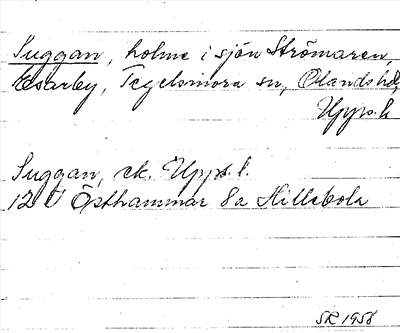 Suggan, holme i sjön Strömaren,
Esarby, Tegelsmora sn, Olands hd,
Upps. l.
Suggan, ek. Upps. l.
12 I Östhammar 8a Hillebola
SR 1958